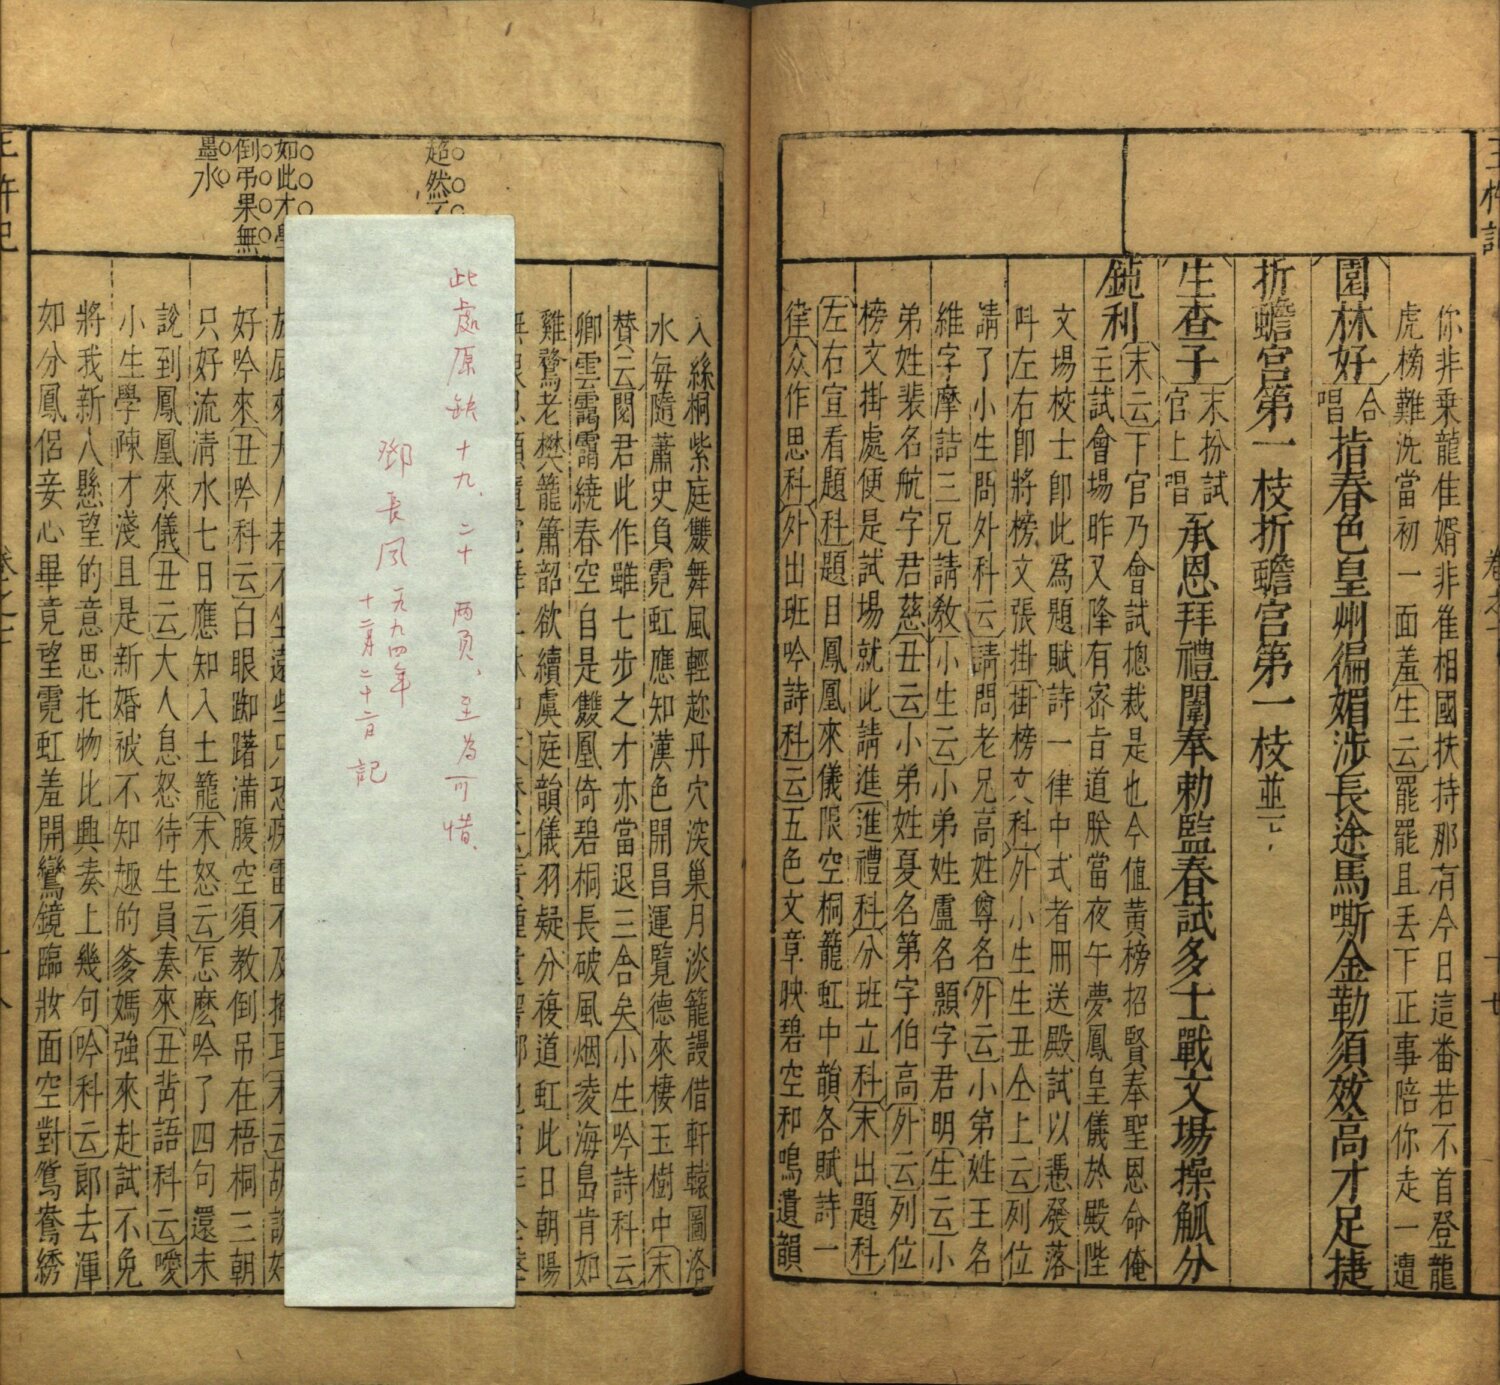 你非乗龍佳婿非隹相國扶持那有今日這番若不首登龍
虎榜難洗當初一面羞生云罷罷且丟下正事陪你走一遭
園林好合唱指春色皇州徧媚涉長途馬嘶金勒須效高才足捷
折蟾宮第一枝折蟾宮第一枝並下
生查子末扮試官上唱承恩拜禮闈奉勅監春試多士戰文場操觚分
鈍利末云下官乃會試總裁是也今值黃榜招賢奉聖恩命俺
主試會場昨又降有密旨道朕當夜午夢鳳皇儀於殿陛
文場校士即此爲題賦詩一律中式者冊送殿試以憑發落
呌左右即將榜文張掛掛榜文科外小生生丑仝上云列位
請了小生問外科云請問老兄高姓尊名外云小第姓王名
維字摩詰三兄請敎小生云小弟姓盧名顯字君明生云小
弟姓裴名航字君慈丑云小弟姓夏名第字伯高外云列位
榜文掛處便是試場就此請進進禮科分班立科末出題科
左右宣看題科題日鳳凰來儀限空桐籠虹中韻各賦詩一
律众作思科外出班吟詩科云五色文章映碧空和鳴遺韻
入絲桐紫庭雙舞風輕趁丹穴深巢月淡籠謾借軒轅圖洛
水每隨蕭史負霓虹應知漢色開昌運覧德來棲玉樹中末
賛云閱君此作雖七步之才亦當退三舍矣小生吟詩科云
卿雲靄靄繞春空自是雙凰倚碧桐長破風烟凌海島肯如
雞鶩老樊籠簫韶欲續虞庭韻儀羽疑分複道虹此日朝陽
超然
此處原缺十九、二十兩頁、至為可惜、
鄧長風一九九四年
十二月二十二日記
如此才學
倒弔果無
墨水
好吟來丑吟科云白眼踟躇滿腹空須教倒吊在梧桐三朝
只好流淸水七日應知入土籠末怒云怎麽吟了四句還未
說到鳳凰來儀丑云大人息怒待生員奏來丑背語科云噯
小生學疎才淺且是新婚被不知趣的爹媽強來赴試不免
將我新人懸望的意思托物比興奏上幾句吟科云郎去渾
如分鳳侶妾心畢竟望霓虹羞開鸞鏡臨妝面空對鴛鴦綉